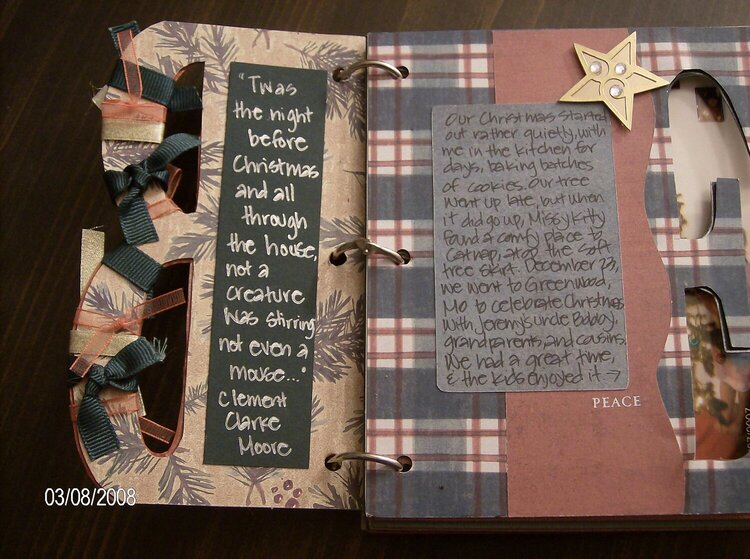 "Twas
the night
before
Christmas
and all
through
the house,
not a
creature
was stirring
not even a
mouse..."
Clement
Clarke
Moore
Our Christmas started
out rather quietly, with
me in the kitchen for
days, baking batches
of cookies. Our tree
went up late, but when
it did go up, Missy Kitty
found a comfy place to
catnap, atop the soft
tree skirt. December 23,
we went to Greenwood,
Mo to celebrate Christmas
with Jeremy's uncle Bobby,
grandparents and cousins.
We had a great time,
& the kids enjoyed it →
PEACE
03/08/2008